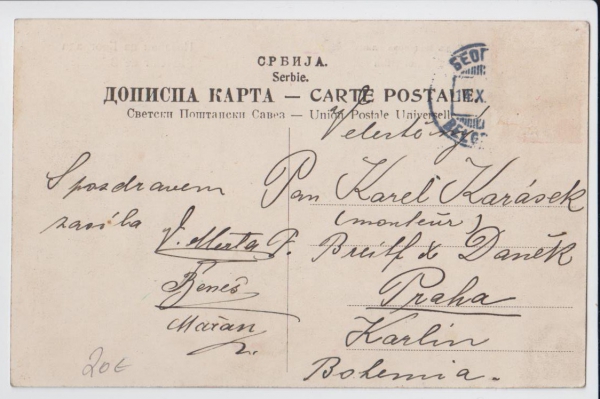 СРБИЈА.
Serbie.
ДОПИСНА КАРТА — CARTE POSTALE.
Светски Поштански Савез — Union Postale Universelle
S pozdravem
zasíla
V. Merta
Beneš
Mařan
Pan Karel Karásek
(monteur)
F. Breitf & Daněk
Praha
Karlín
Bohemia.
20€